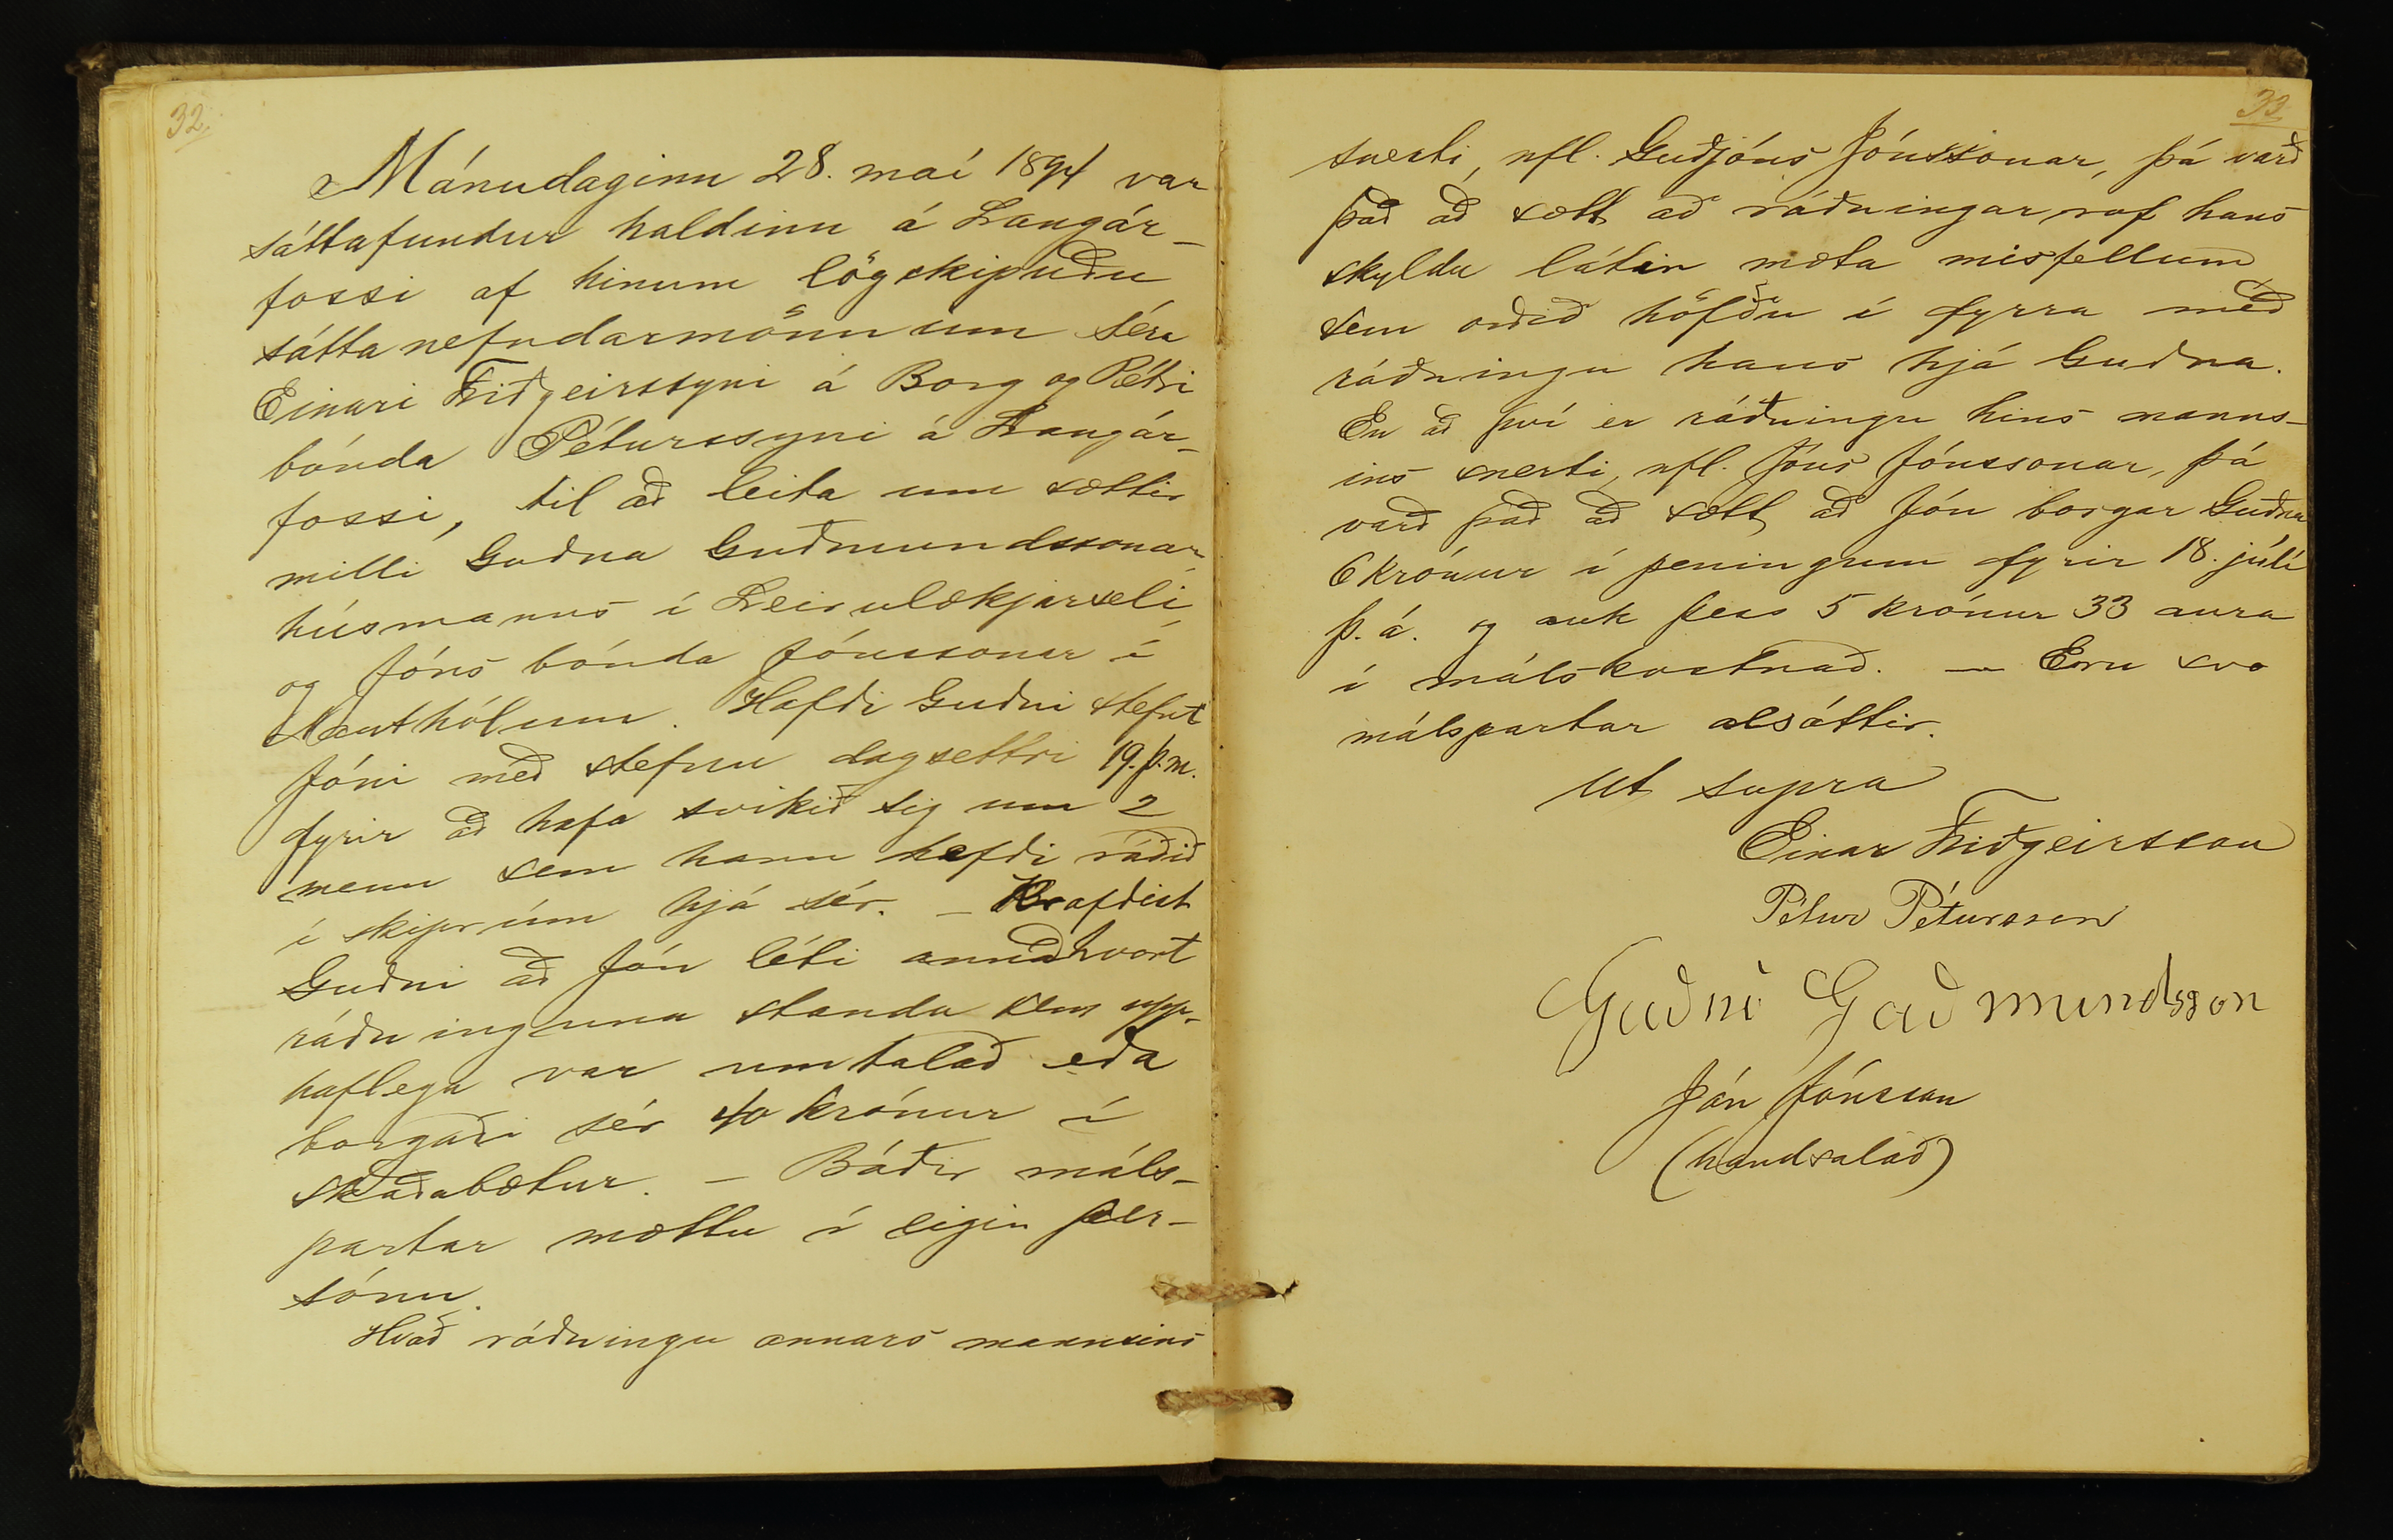 32.
Mánudaginn 28. maí 1894 var
sáttafundur haldinn á Langár-
fossi af hinum lögskipuðu
sáttanefndarmönnum séra
Einari Friðgeirssyni á Borg og Pétri
bónda Péturssyni á Langár-
fossi, til að leita um sættir
milli Guðna Guðmundssonar,
húsmanns í Leirulækjarseli,
og Jóns bónda Jónssonar í
Nauthólum. Hafði Guðni stefnt
Jóni með stefnu dagsettri 19. þ.m.
fyrir að hafa svikið sig um 2
menn sem hann hefði ráðið
í skiprúm hjá sér. – Krafðist
Guðni að Jón léti annaðhvort
ráðninguna standa sem upp-
haflega var umtalað eða
borgaði sér 40 krónur í
skaðabætur. – Báðir máls-
partar mættu í eigin per-
sónu.
Hvað ráðningu annars mannsins
33
snerti, nfl. Guðjóns Jónssonar, þá varð
það að sætt að ráðningarrof hans
skyldu látin mæta misfellum
sem orðið höfðu í fyrra með
ráðningu hans hjá Guðna.
En að því er ráðningu hins manns-
ins snerti, nfl. Jóns Jónssonar, þá
varð það að sætt að Jón borgar Guðna
6 krónur í peningum fyrir 18. júlí
þ. á. og auk þess 5 krónur 33 aura
í málskostnað. – Eru svo
málspartar alsáttir.
Ut supra
Einar Friðgeirsson
Pétur Pétursson
Guðni Guðmundsson
Jón Jónsson
(handsalað)